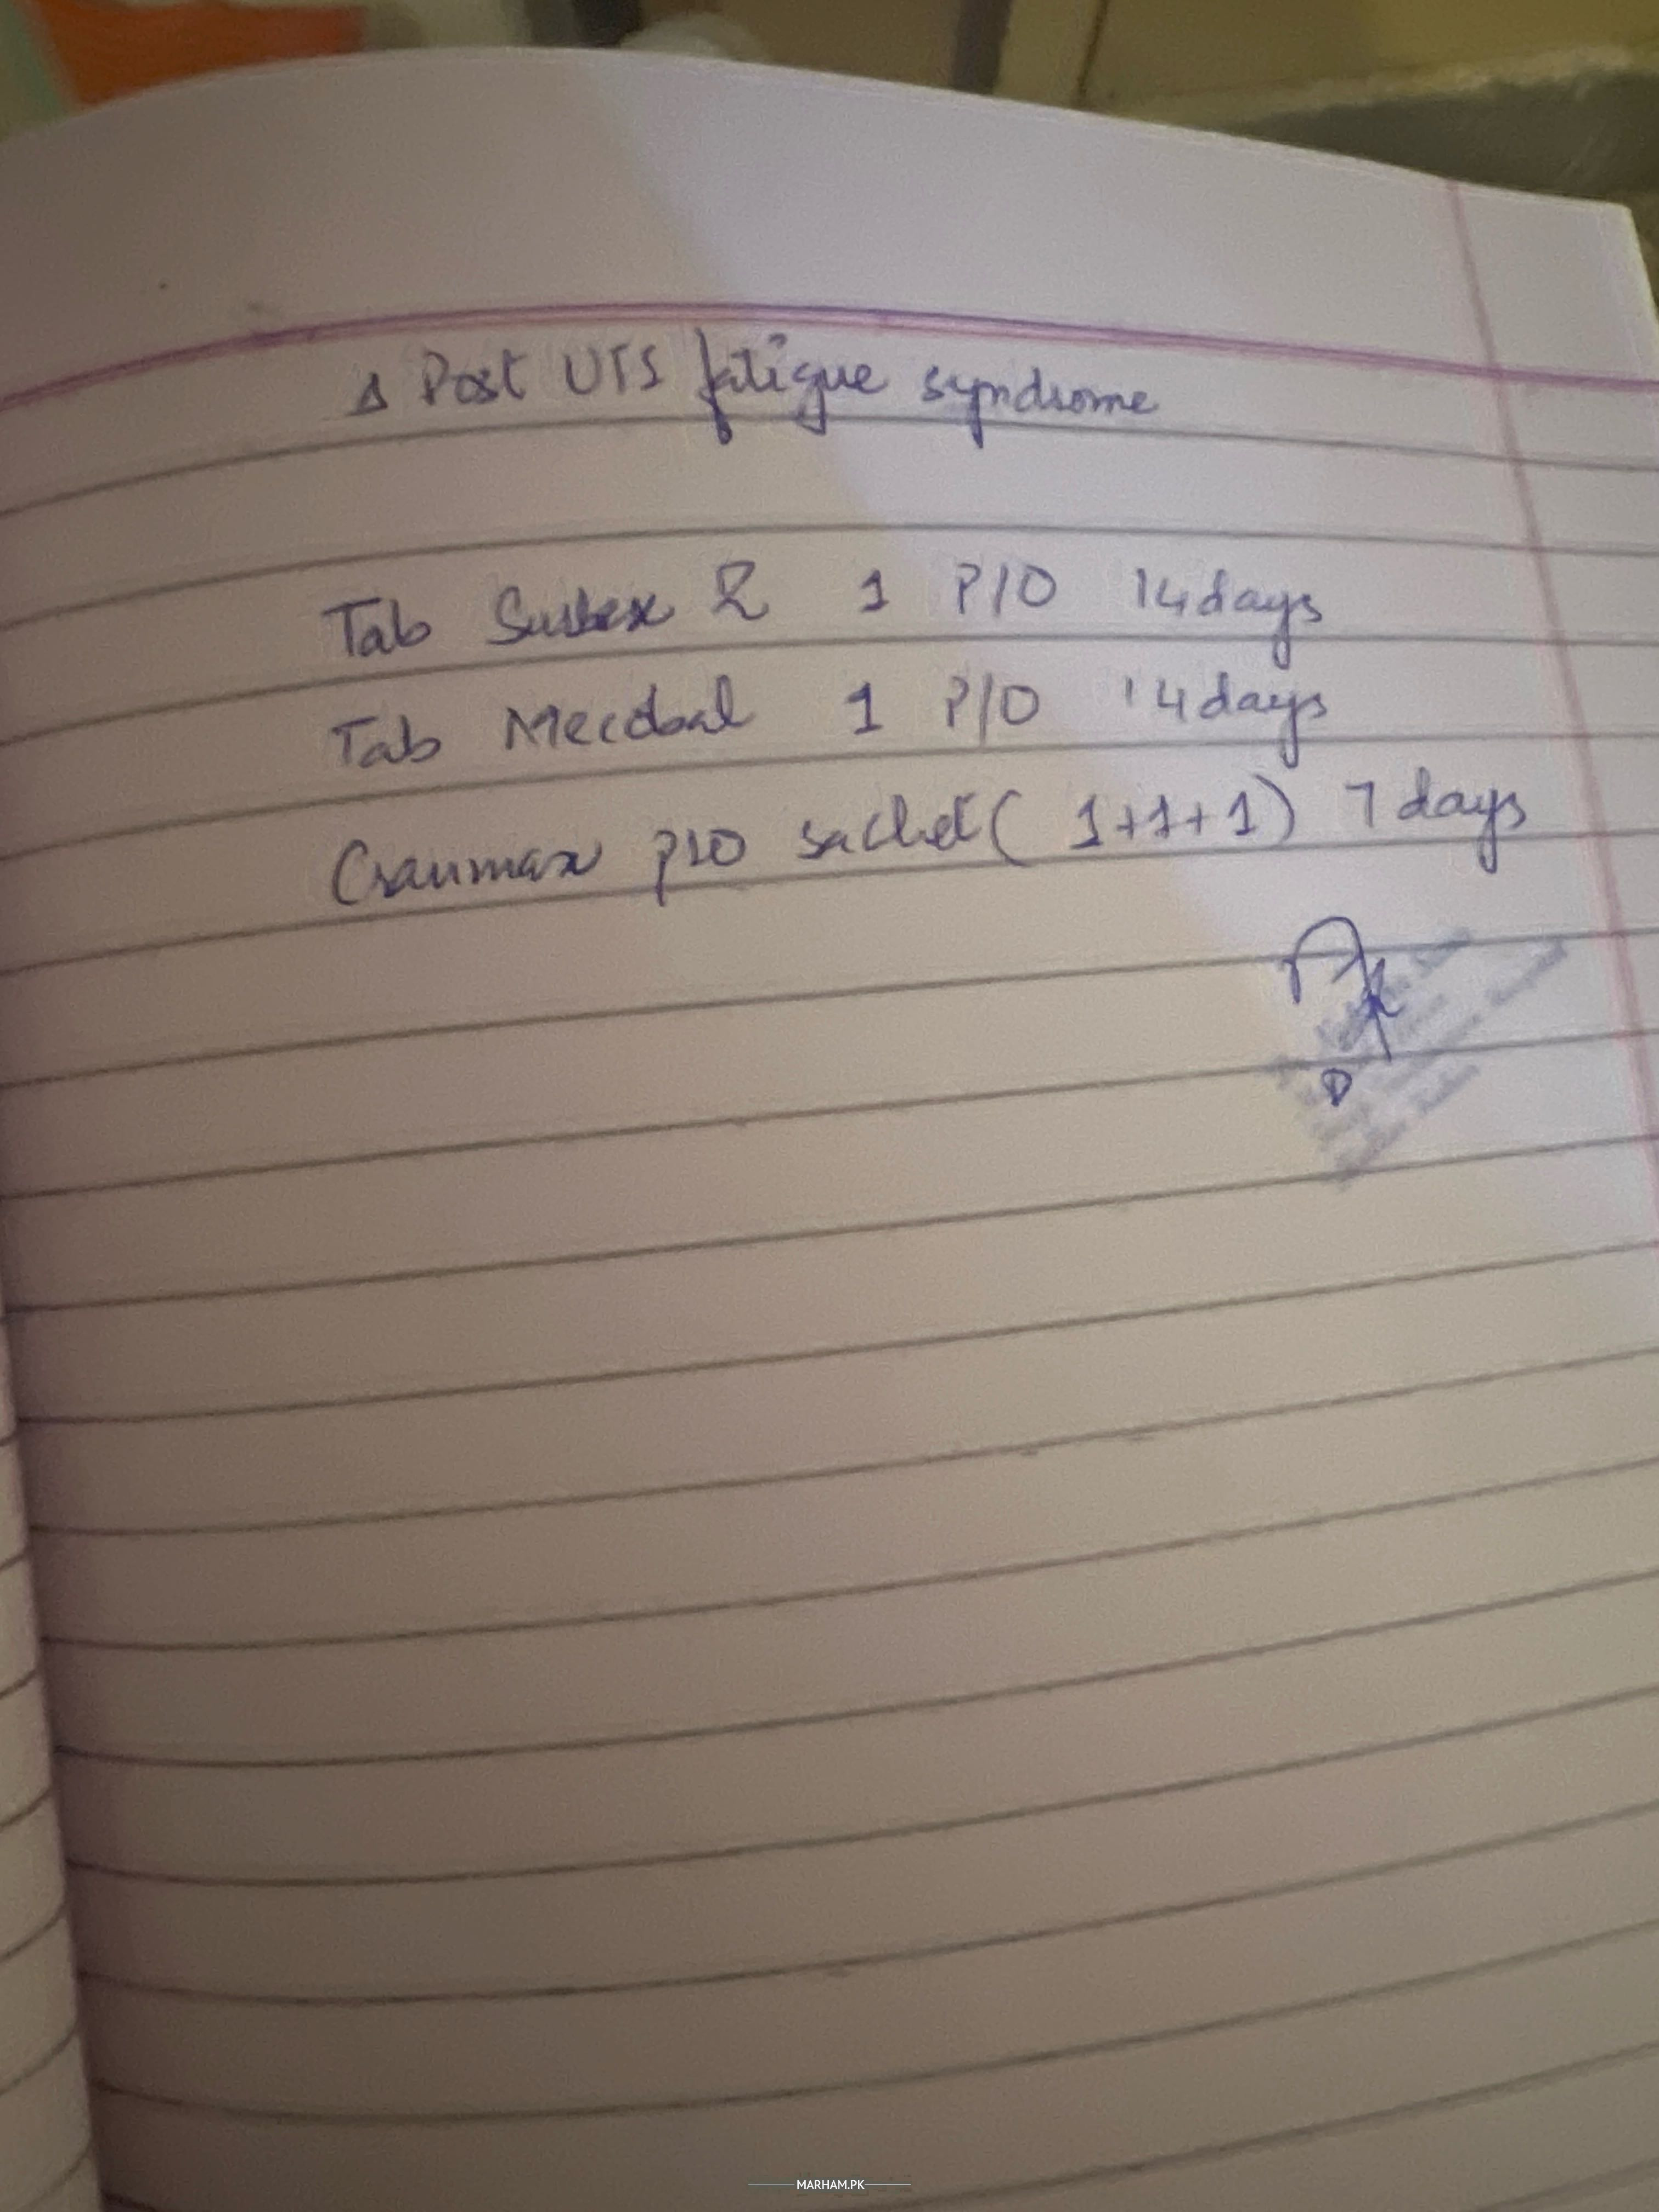 Δ Post UTS fatigue syndrome
Tab Surbex Z 1 P/O 14 days
Tab Mecobal 1 P/O 14 days
Cranmax P/O sachet (1+1+1) 7 days
MARHAM.PK